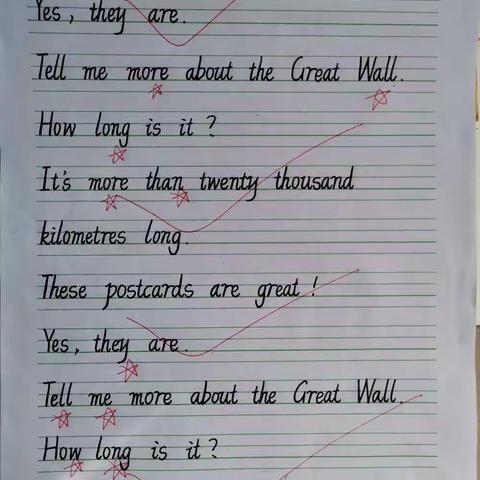 Yes, they are.
Tell me more about the Great Wall.
How long is it?
It's more than twenty thousand
kilometres long.
These postcards are great!
Yes, they are.
Tell me more about the Great Wall.
How long is it?